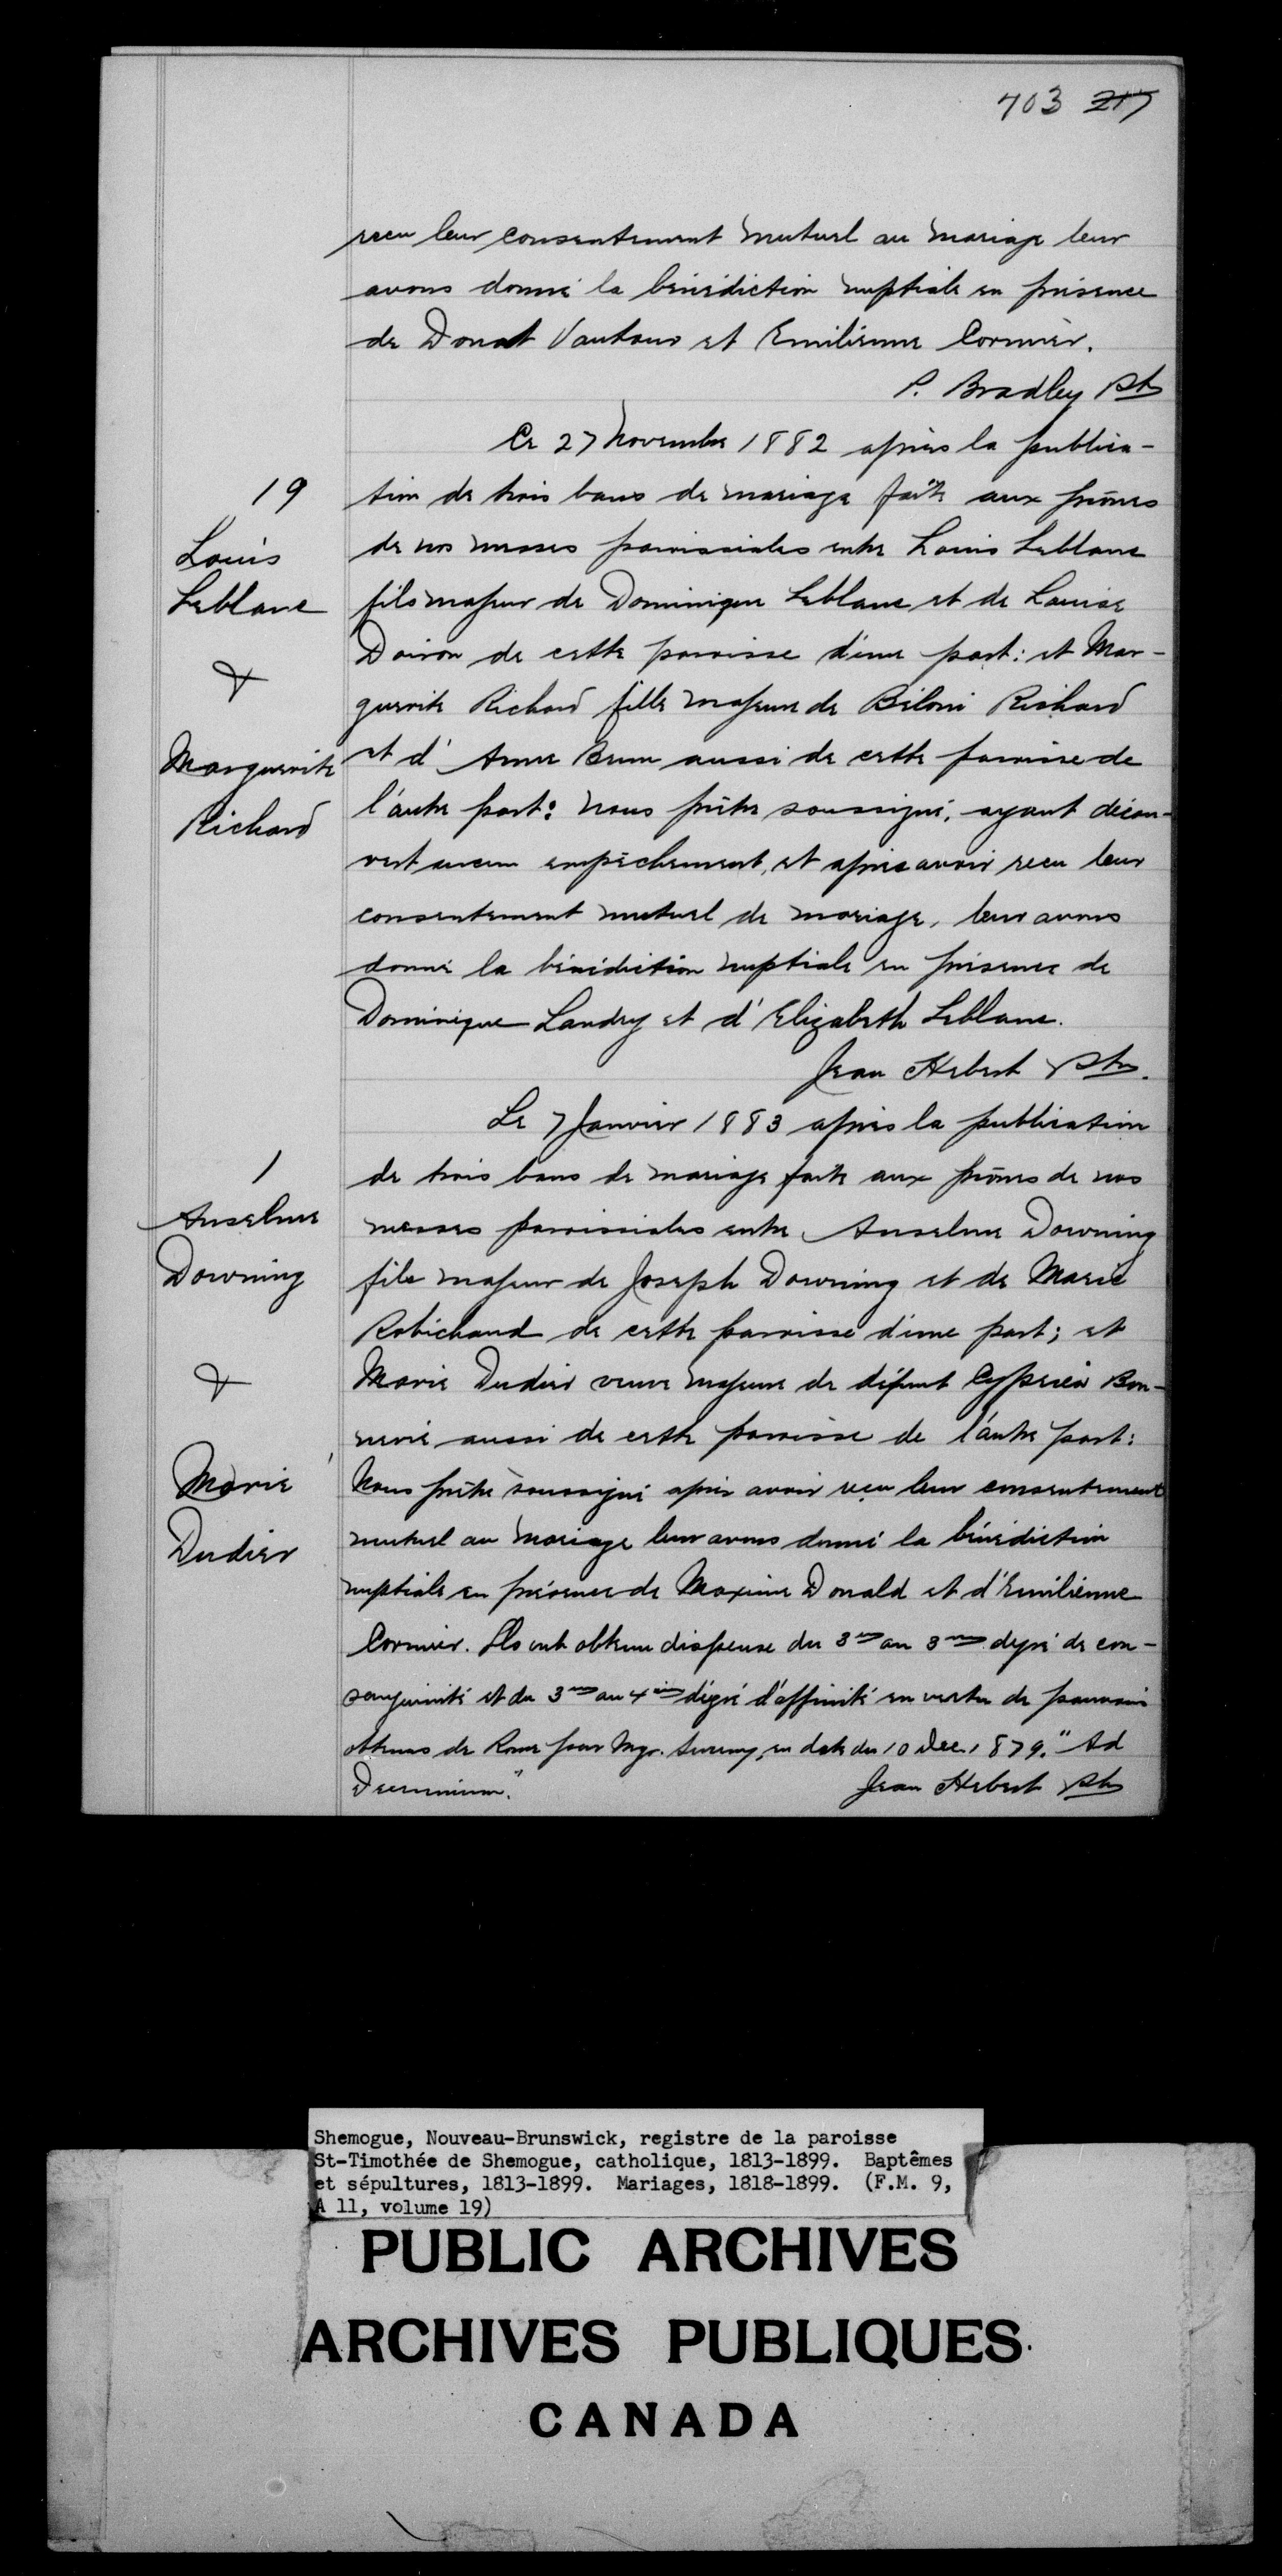 703 217
reçu leur consentement mutuel au mariage leur
avons donné la bénédiction nuptiale en présence
de Donat Vautour et Emilienne Cormier.
P. Bradley Ptre
Ce 27 Novembre 1882 après la publica-
19
tion de trois bans de mariage faite aux prônes
Louis
de nos messes paroissiales entre Louis Leblanc
Leblanc
fils majeur de Dominique Leblanc et de Louise
&
Doiron de cette paroisse d'une part: et Mar-
guerite Richard fille majeure de Béloni Richard
Marguerite
et d' Anne Brun aussi de cette paroisse de
Richard
l'autre part: Nous prêtre soussigné, ayant décou-
vert aucun empêchement, et après avoir reçu leur
consentement mutuel de mariage, leur avons
donné la bénédiction nuptiale en présence de
Dominique Landry et d' Elizabeth Leblanc.
Jean Hebert Ptre.
Le 7 Janvier 1883 après la publication
1
de trois bans de mariage faite aux prônes de nos
Anselme
messes paroissiales entre Anselme Downing
Downing
fils majeur de Joseph Downing et de Marie
Robichaud de cette paroisse d'une part; et
&
Marie Dudier veuve majeure de défunt Cyprien Bon-
nevie aussi de cette paroisse de l'autre part:
Marie
Nous prêtre soussigné après avoir reçu leur consentement
Dudier
mutuel au mariage leur avons donné la bénédiction
nuptiale en présence de Maxime Donald et d'Emilienne
Cormier. Ils ont obtenu dispense du 3me au 3me degré de con-
sanguinité et du 3me au 4me dégré d'affinité en vertu de pouvoirs
obtenus de Rome pour Mgr. Sweeny, en date du 10 Dec. 1879. "Ad
Decennium."
Jean Hebert Ptre
Shemogue, Nouveau-Brunswick, registre de la paroisse
St-Timothée de Shemogue, catholique, 1813-1899. Baptêmes
et sépultures, 1813-1899. Mariages, 1818-1899. (F.M. 9,
A 11, volume 19)
PUBLIC ARCHIVES
ARCHIVES PUBLIQUES
CANADA